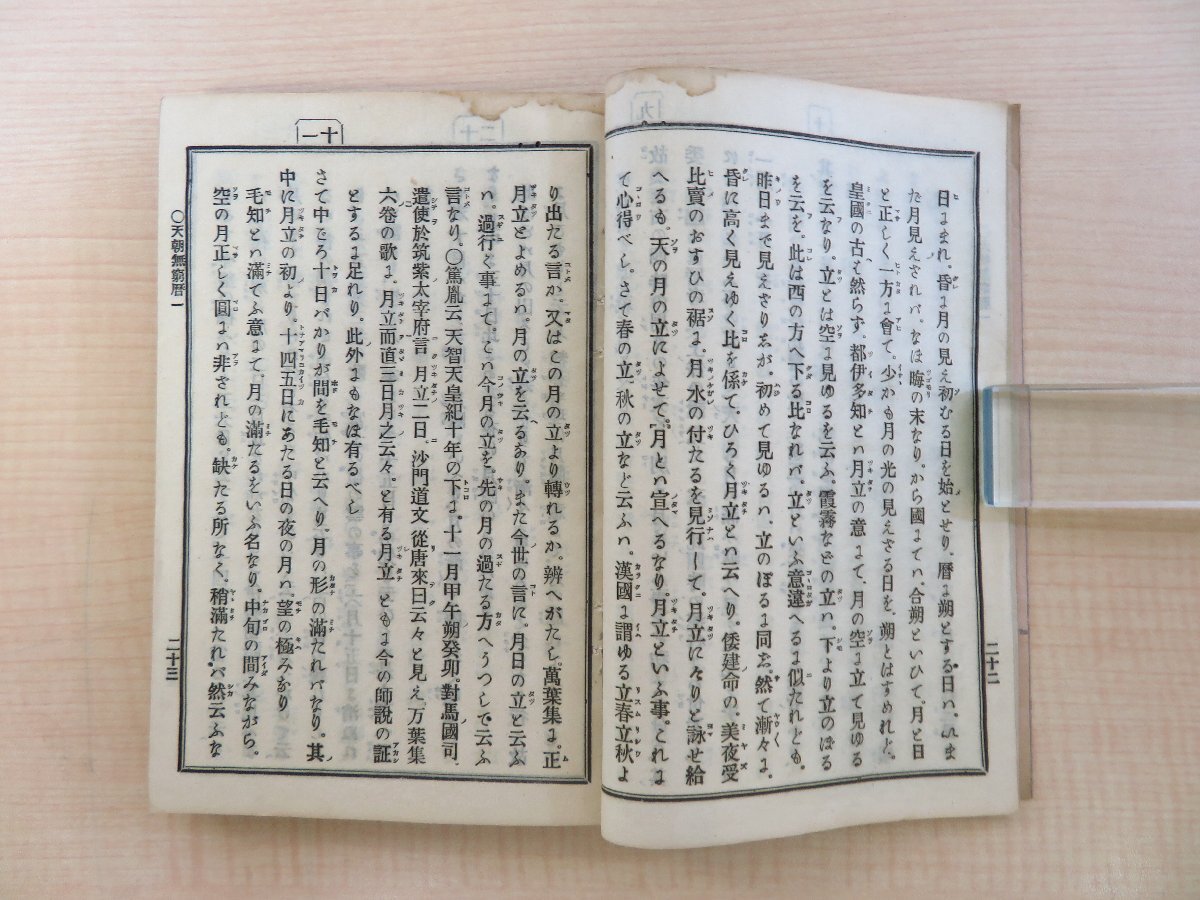 日にまれ。昏に月の見え初むる日を始とせり。暦に朔とする日ハ。いま
た月見えされバ。なほ晦の末なり。から國にてハ。合朔といひて。月と日
と正しく一方に會て。少かも月の光の見えさる日を。朔とはすめれど。
皇國の古へ然らず。都伊多知とハ月立の意にて。月の空に立て見ゆる
を云なり。立とは空に見ゆるを云ふ。霞霧などの立ハ。下より立のぼる
を云を。此は西の方へ下る比なれバ。立といふ意違へるに似たれども。
昨日まで見えさりしが。初めて見ゆるハ。立のぼるに同じ。然て漸々に。
昏に高く見えゆく比を係て。ひろく月立とハ云へり。倭建命の。美夜受
比賣のおすひの裾に。月水の付たるを見行して。月立にけりと詠せ給
へるも。天の月の立によせて。月とハ宣へるなり。月立といふ事。これに
て心得べし。さて春の立。秋の立など云ふハ。漢國に謂ゆる立春立秋よ
二十二
十一
り出たる言か。又はこの月の立より轉れるか。辨へがたし。萬葉集に。正
月立とよめるハ。月の立を云るあり。また今世の言に。月日の立と云ふ
ハ。過行く事にて。そハ今月の立を。先の月の過たる方へうつして云ふ
言なり。〇篤胤云 天智天皇紀十年の下に。十一月甲午朔癸卯。對馬國司
遣使於筑紫太宰府言。月立二日。沙門道文 從唐來曰云々と見え。万葉集
六卷の歌に。月立而直三日月之云々。と有る月立 ともに今の師説の証
とするに足れり。此外にもなほ有るべし
さて中ごろ十日バかりが間を毛知と云へり。月の形の滿たれバなり。其
中に月立の初より。十四五日にあたる日の夜の月ハ。望の極みなり
毛知とハ滿てふ意にて。月の滿たるをいふ名なり。中旬の間みながら。
空の月正しく圓にハ非されども。缺たる所なく。稍滿たれバ然云ふな
〇天朝無窮暦一
二十三